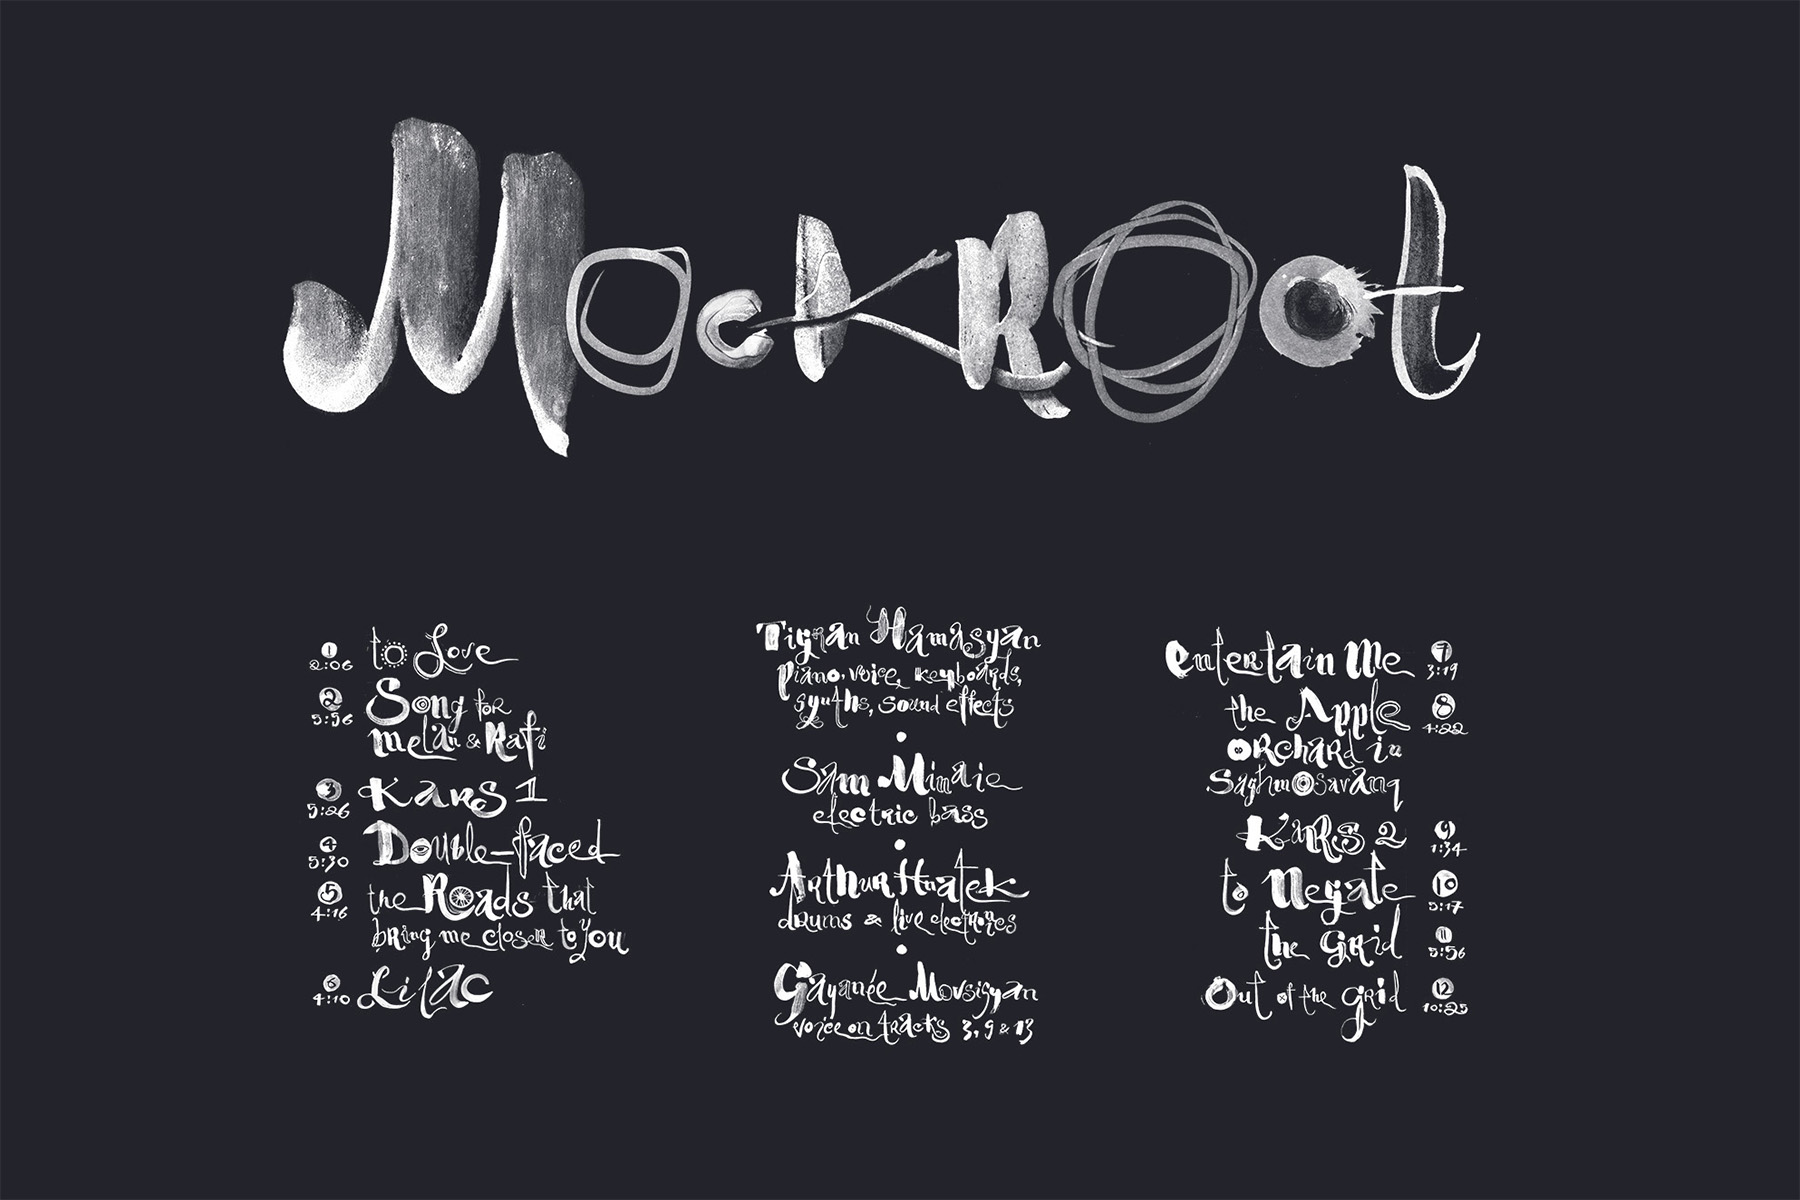 MockRoot
1 to Love
2:06
2 Song for
5:56 Melan & Rafi
3 Kars 1
5:26
4 Double-Faced
5:30
5 the Roads that
4:16 bring me closer to you
6 Lilac
4:10
Tigran Hamasyan
piano, voice, keyboards,
synths, sound effects
•
Sam Minaie
electric bass
•
Arthur Hnatek
drums & live electronics
•
Gayanée Movsisyan
voice on tracks 3, 9 & 13
entertain Me 7
3:19
the Apple 8
4:22
ORchard in
Saghmosavanq
KaRs 2 9
1:34
to Negate 10
5:17
the Grid 11
5:56
Out of the grid 12
10:25